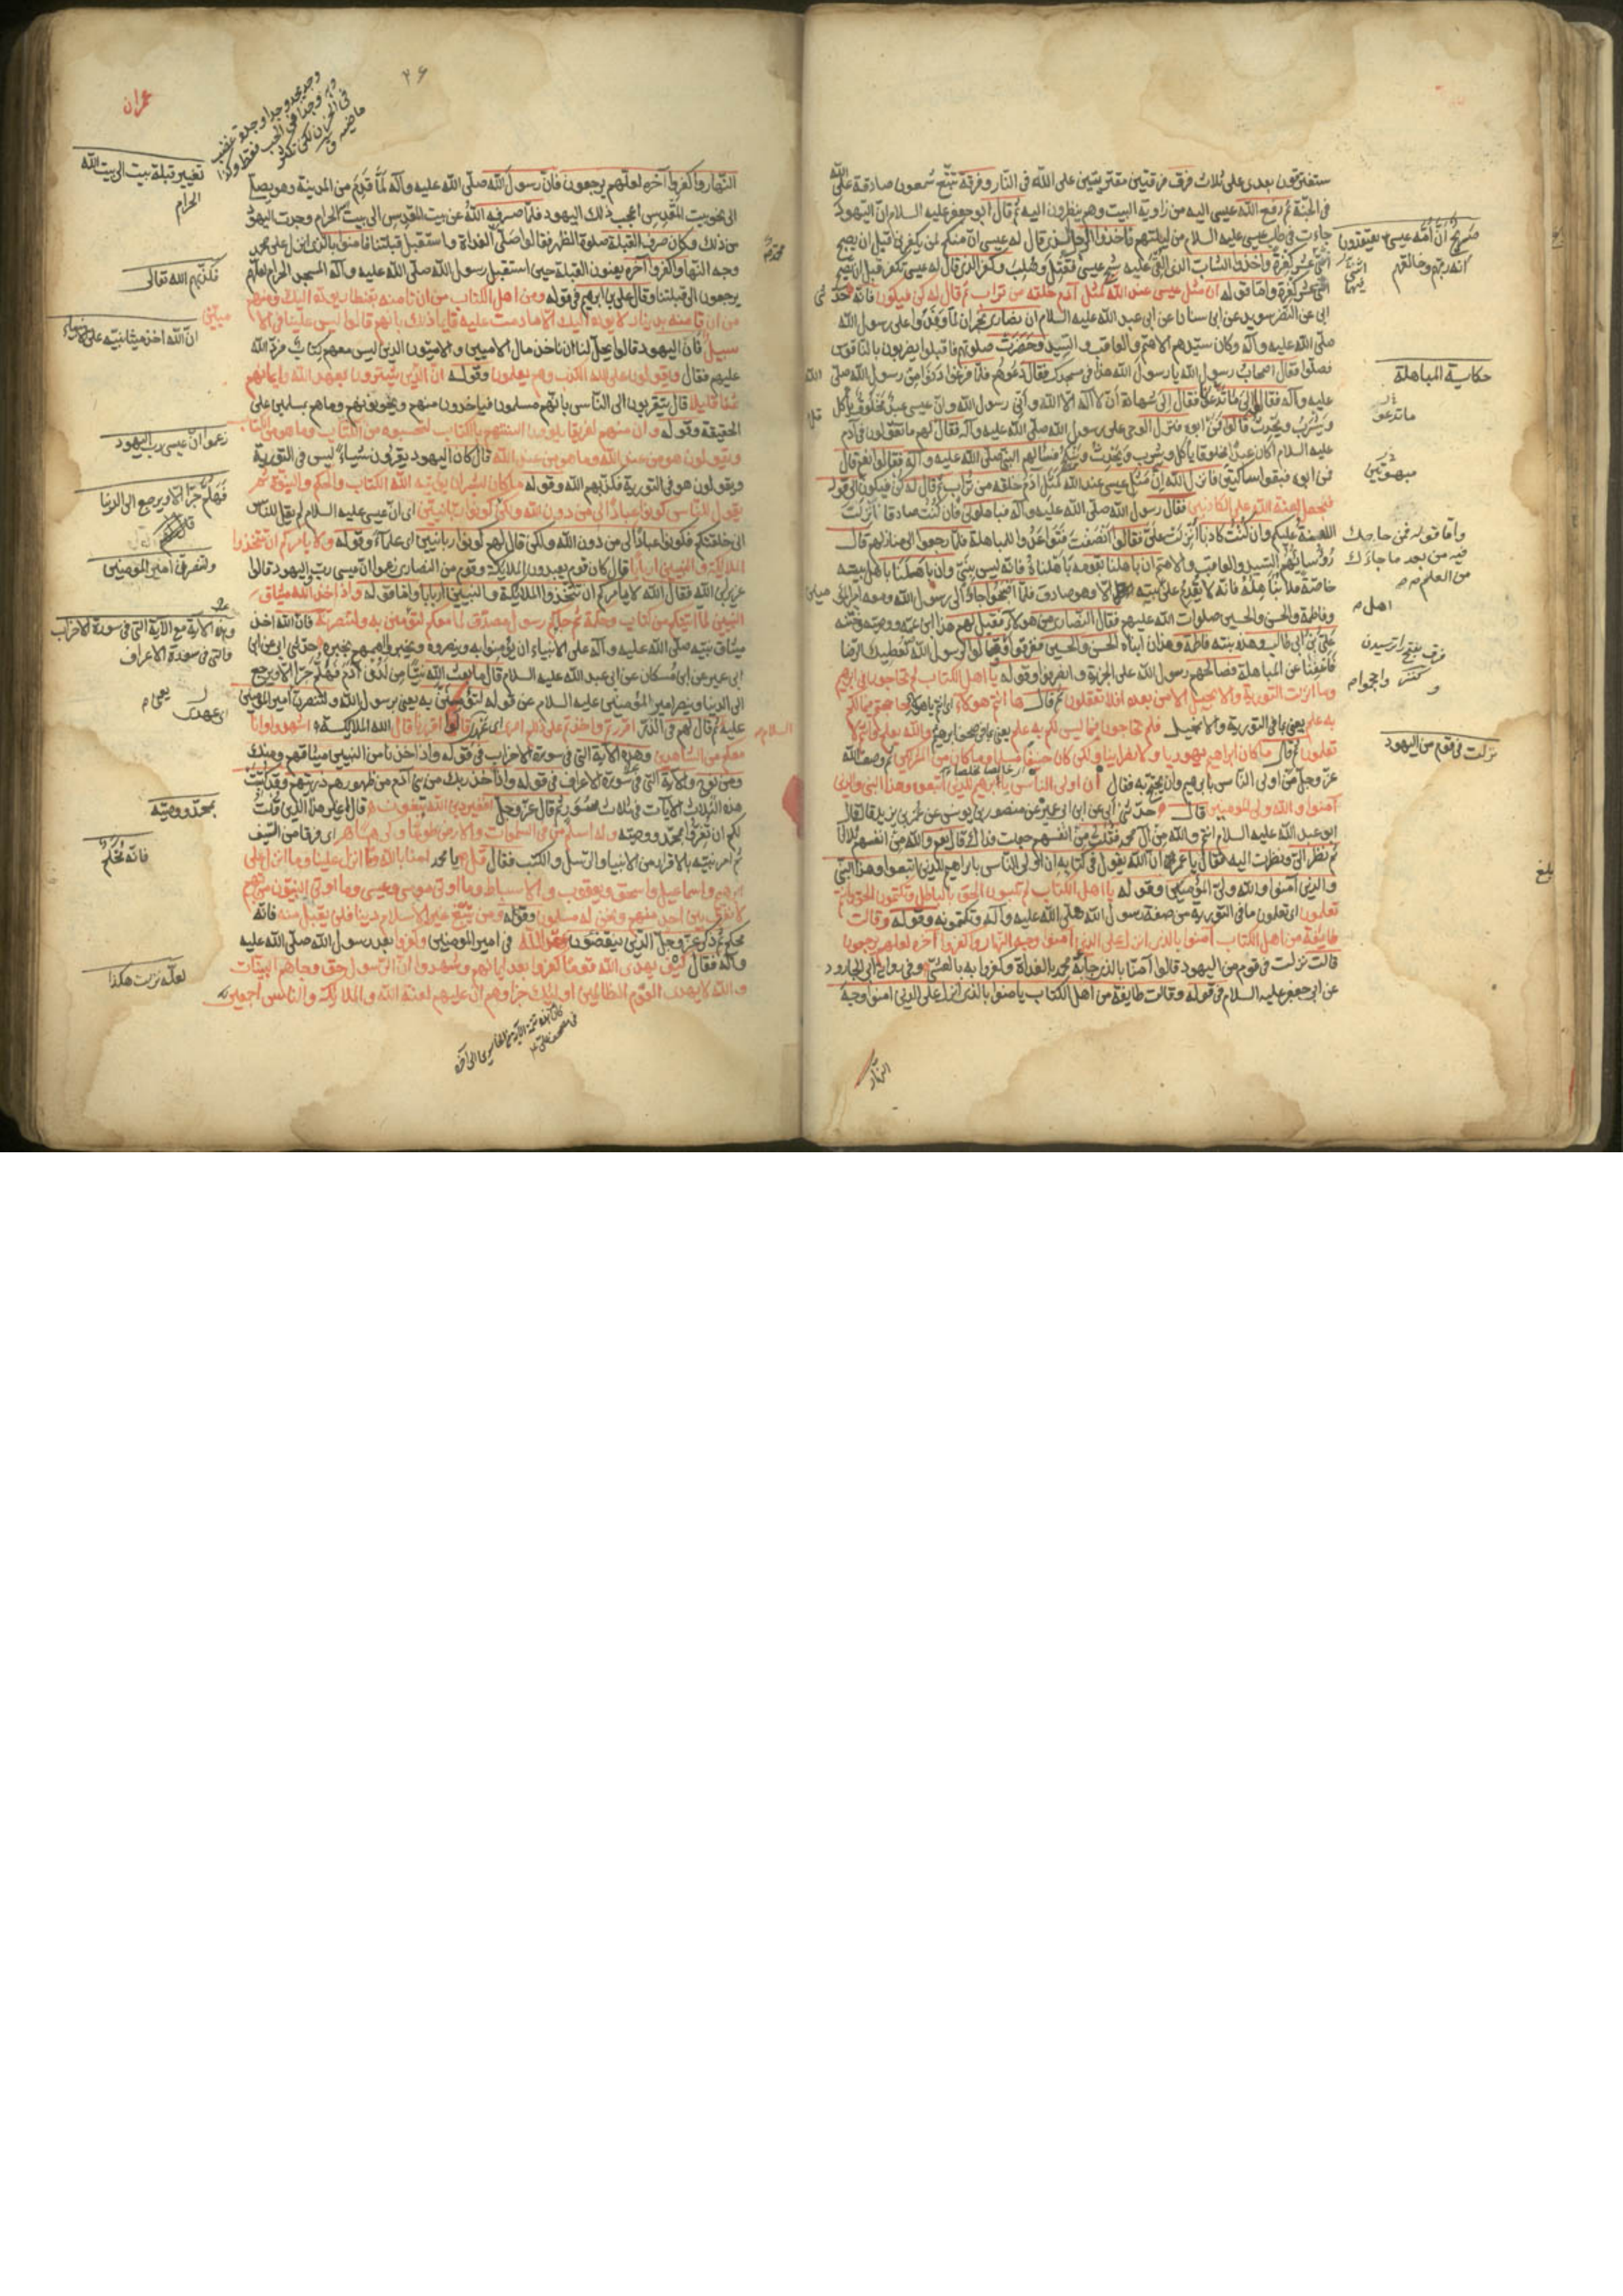 ستفترقون بعدى على ثلاث فرق فرقتين مفتريتين على الله فى النار وفرقة تتبع شمعون صادقة على الله
فى الجنة ثم رفع الله عيسى اليه من زاوية البيت وهم ينظرون اليه ثم قال ابو جعفر عليه السلام ان اليهود
جاءت فى طلب عيسى عليه السلام من ليلتهم فاخذوا الرجل الذى قال له عيسى ان منكم لمن يكفر بى قبل ان يصبح
اثنتى عشر كفرة واخذوا الشاب الذى القى عليه شبح عيسى فقتل وصلب وكفر الذى قال له عيسى تكفر قبل ان تصبح
اثنتى عشر كفرة واما قوله ان مثل عيسى عند الله كمثل آدم خلقه من تراب ثم قال له كن فيكون فانه حدثنى
ابى عن النضر بن سويد عن ابن سنان عن ابى عبد الله عليه السلام ان نصارى نجران لما وفدوا على رسول الله
صلى الله عليه وآله وكان سيدهم الاهتم والعاقب والسيد وحضرت صلوتهم فاقبلوا يضربون بالناقوس
فصلوا فقال اصحاب رسول الله يا رسول الله هذا فى مسجدك فقال دعوهم فلما فرغوا دنوا من رسول الله صلى الله
عليه وآله فقالوا الى ما تدعو فقال الى شهادة أن لا اله الا الله وأنى رسول الله وان عيسى عبد مخلوق يأكل
ويشرب ويحدث قالوا فمن ابوه فنزل الوحى على رسول الله صلى الله عليه وآله فقال قل لهم ما تقولون فى آدم
عليه السلام أكان عبدا مخلوقا يأكل ويشرب ويحدث وينكح فسألهم النبى صلى الله عليه وآله فقالوا نعم قال
فمن ابوه فبقوا ساكتين فانزل الله ان مثل عيسى عند الله كمثل آدم خلقه من تراب ثم قال له كن فيكون الى قوله
فنجعل لعنة الله على الكاذبين فقال رسول الله صلى الله عليه وآله فباهلونى فان كنت صادقا نزلت
اللعنة عليكم وان كنت كاذبا نزلت على فقالوا انصفت فتواعدوا للمباهلة فلما رجعوا الى منازلهم قال
رؤسائهم السيد والعاقب والاهتم ان باهلنا بقومه باهلناه فانه ليس بنبى وان باهلنا باهل بيته
خاصة فلا نباهله فانه لا يقدم على بيته الا وهو صادق فلما اصبحوا جاؤا الى رسول الله ومعه امير المؤمنين
وفاطمة والحسن والحسين صلوات الله عليهم فقال النصارى من هولاء فقيل لهم هذا ابن عمه ووصيه وختنه
على بن ابى طالب وهذه بنته فاطمة وهذان ابناه الحسن والحسين فعرفوا وقالوا لرسول الله نعطيك الرضا
فاعفنا عن المباهلة فصالحهم رسول الله على الجزية وانصرفوا وقوله يا اهل الكتاب لم تحاجون فى ابرهيم
وما انزلت التورية والانجيل الا من بعده افلا تعقلون ثم قال ها انتم هولاء اى انتم يا هولاء حاججتم فيما لكم
به علم يعنى بما فى التورية والانجيل فلم تحاجون فيما ليس لكم به علم يعنى بما فى صحف ابرهيم والله يعلم وانتم لا
تعلمون ثم قال ما كان ابراهيم يهوديا ولا نصرانيا ولكن كان حنيفا مسلما وما كان من المشركين ثم وصف الله
عز وجل من اولى الناس بابرهيم وان يحتج به فقال ان اولى الناس بابرهيم للذين اتبعوه وهذا النبى والذين
آمنوا والله ولى المؤمنين قال حدثنى ابى عن ابن ابى عمير عن منصور بن يونس عن عمر بن يزيد قال قال
ابو عبد الله عليه السلام انتم والله من آل محمد فقلت من انفسهم جعلت فداك قال نعم والله من انفسهم ثلاثا
ثم نظر الى ونظرت اليه فقال يا عمر ان الله يقول فى كتابه ان اولى الناس بابراهيم للذين اتبعوه وهذا النبى
والذين آمنوا والله ولى المؤمنين وقوله يا اهل الكتاب لم تلبسون الحق بالباطل وتكتمون الحق وانتم
تعلمون اى تعلمون ما فى التورية من صفة رسول الله صلى الله عليه وآله وتكتمونه وقوله وقالت
طايفة من اهل الكتاب آمنوا بالذى انزل على الذين آمنوا وجه النهار واكفروا آخره لعلهم يرجعون
قالت نزلت فى قوم من اليهود قالوا آمنا بالذى جاء به محمد بالغداة وكفروا به بالعشى وفى رواية ابى الجارود
عن ابى جعفر عليه السلام فى قوله وقالت طايفة من اهل الكتاب آمنوا بالذى انزل على الذين آمنوا وجه
النهار
حكاية المباهلة
ما تدعو
مبهوتين
واما قوله فمن حاجك
فيه من بعد ما جاءك
من العلم
اهل
نزلت فى قوم من اليهود
بلغ
٢۶
عمران
النهار واكفروا آخره لعلهم يرجعون فان رسول الله صلى الله عليه وآله لما قدم من المدينة وهو يصلى
الى نحو بيت المقدس اعجب ذلك اليهود فلما صرفه الله عن بيت المقدس الى بيت الحرام وجدت اليهود
من ذلك وكان صرف القبلة صلوة الظهر فقالوا صلى الغداة واستقبل قبلتنا فآمنوا بالذى انزل على محمد
وجه النهار واكفروا آخره يعنون القبلة حين استقبل رسول الله صلى الله عليه وآله المسجد الحرام لعلهم
يرجعون الى قبلتنا وقال على بن ابرهيم فى قوله ومن اهل الكتاب من ان تامنه بقنطار يوده اليك ومنهم
من ان تامنه بدينار لا يوده اليك الا ما دمت عليه قايما ذلك بانهم قالوا ليس علينا فى الاميين
سبيل فان اليهود قالوا يحل لنا ان ناخذ مال الاميين والاميون الذين ليس معهم كتاب فرد الله
عليهم فقال ويقولون على الله الكذب وهم يعلمون وقوله ان الذين يشترون بعهد الله وايمانهم
ثمنا قليلا قال يتقربون الى الناس بانهم مسلمون فياخذون منهم ويخونونهم وما هم بمسلمين على
الحقيقة وقوله وان منهم لفريقا يلوون السنتهم بالكتاب لتحسبوه من الكتاب وما هو من الكتاب
ويقولون هو من عند الله وما هو من عند الله قال كان اليهود يقرؤن شيأ ليس فى التورية
ويقولون هو فى التورية فكذبهم الله وقوله ما كان لبشر ان يؤتيه الله الكتاب والحكم والنبوة ثم
يقول للناس كونوا عبادا لى من دون الله ولكن كونوا ربانيين اى ان عيسى عليه السلام لم يقل للناس
انى خلقتكم فكونوا عبادا لى من دون الله ولكن قال لهم كونوا ربانيين اى علماء وقوله ولا يامركم ان تتخذوا
الملايكة والنبيين اربابا قال كان قوم يعبدون الملايكة وقوم من النصارى زعموا ان عيسى رب واليهود قالوا
عزير ابن الله فقال الله لا يامركم ان تتخذوا الملايكة والنبيين اربابا واما قوله واذ اخذ الله ميثاق
النبيين لما آتيتكم من كتاب وحكمة ثم جاءكم رسول مصدق لما معكم لتؤمنن به ولتنصرنه فان الله اخذ
ميثاق نبيه صلى الله عليه وآله على الانبياء ان يؤمنوا به وينصروه ويخبروا اممهم بخبره حدثنى ابى عن ابن
ابى عمير عن ابن مسكان عن ابى عبد الله عليه السلام قال ما بعث الله نبيا من لدن آدم فهلم جرا الا ويرجع
الى الدنيا وينصر امير المؤمنين عليه السلام عن قوله لتؤمنن به يعنى برسول الله ولتنصرن امير المؤمنين
عليه ثم قال لهم فى الذر أأقررتم واخذتم على ذلكم اصرى اى عهدى قالوا اقررنا قال الله للملايكة اشهدوا وانا
معكم من الشاهدين وهذه الآية التى فى سورة الاحزاب فى قوله واذ اخذنا من النبيين ميثاقهم ومنك
ومن نوح والآية التى فى سورة الاعراف فى قوله واذ اخذ ربك من بنى آدم من ظهورهم ذريتهم وقد كتبت
هذه الثلاث الآيات فى ثلاث سور ثم قال عز وجل افغير دين الله تبغون قال أغير هذا الذى قلت
لكم ان تقروا بمحمد ووصيه وله اسلم من فى السموات والارض طوعا وكرها اى فرقا من السيف
ثم امر نبيه بالاقرار من الانبيا والرسل والكتب فقال قل يا محمد امنا بالله وما انزل علينا وما انزل على
ابرهيم واسماعيل واسحق ويعقوب والاسباط وما اوتى موسى وعيسى وما اوتى النبيون من ربهم
لا نفرق بين احد منهم ونحن له مسلمون وقوله ومن يبتغ غير الاسلام دينا فلن يقبل منه فانه
محكم ثم ذكر عز وجل الذين ينقضون عهد الله فى امير المؤمنين وكفروا بعد رسول الله صلى الله عليه
وآله فقال كيف يهدى الله قوما كفروا بعد ايمانهم وشهدوا ان الرسول حق وجاءهم البينات
والله لا يهدى القوم الظالمين اوليك جزاوهم ان عليهم لعنة الله والملايكة والناس اجمعين
تغيير قبلة بيت الى بيت الله
الحرام
فكذبهم الله تعالى
ان الله اخذ ميثاق نبيه على الانبياء
زعموا ان عيسى رب اليهود
فهلم جرا الا ويرجع الى الدنيا
ولتنصرن امير المؤمنين
وهذه الآية مع الآية التى فى سورة الاحزاب
والتى فى سورة الاعراف
اى عهدى
بمحمد ووصيه
فانه محكم
لعله نزلت هكذا